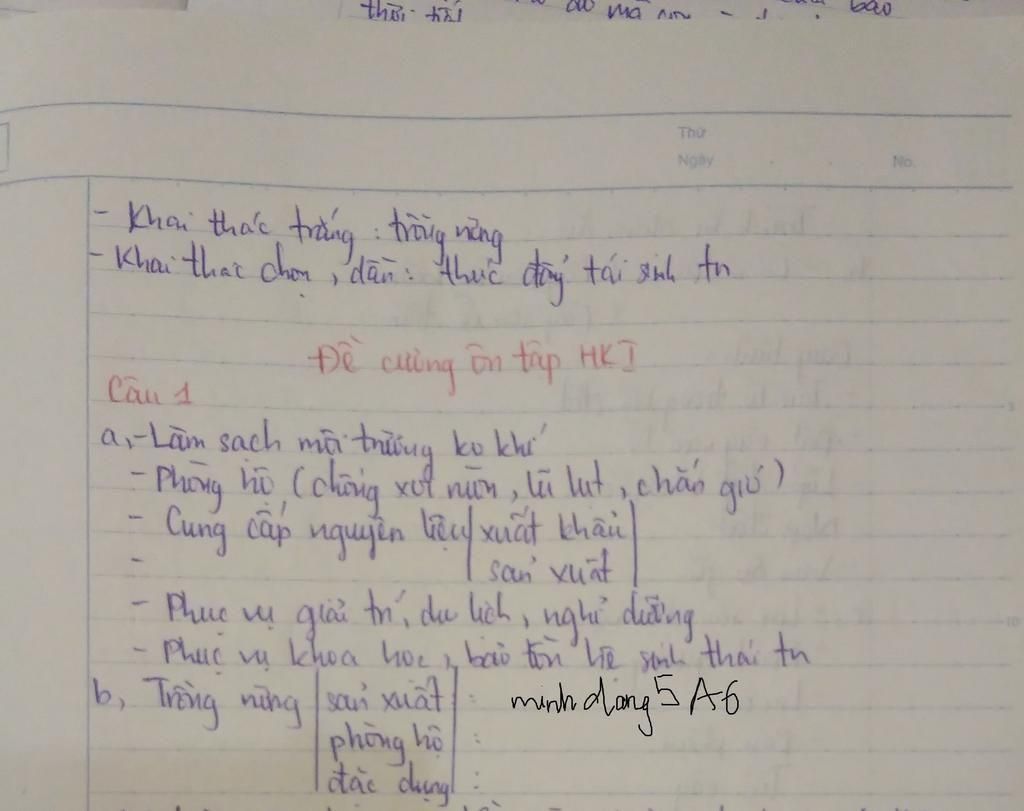 thời tiết bảo
Thứ
Ngày No.
- Khai thác trắng : trồng rừng
- Khai thác chọn, dần : thúc đẩy tái sinh tn
Đề cương ôn tập HKI
Câu 1
a, - Làm sạch môi trường ko khí
- Phòng hộ (chống xói mòn, lũ lụt, chắn gió)
- Cung cấp nguyên liệu xuất khẩu
- sản xuất
- Phục vụ giải trí, du lịch, nghỉ dưỡng
- Phục vụ khoa học, bảo tồn hệ sinh thái tn
b, Trồng rừng sản xuất : minh dang 5 A6
phòng hộ :
đặc dụng :